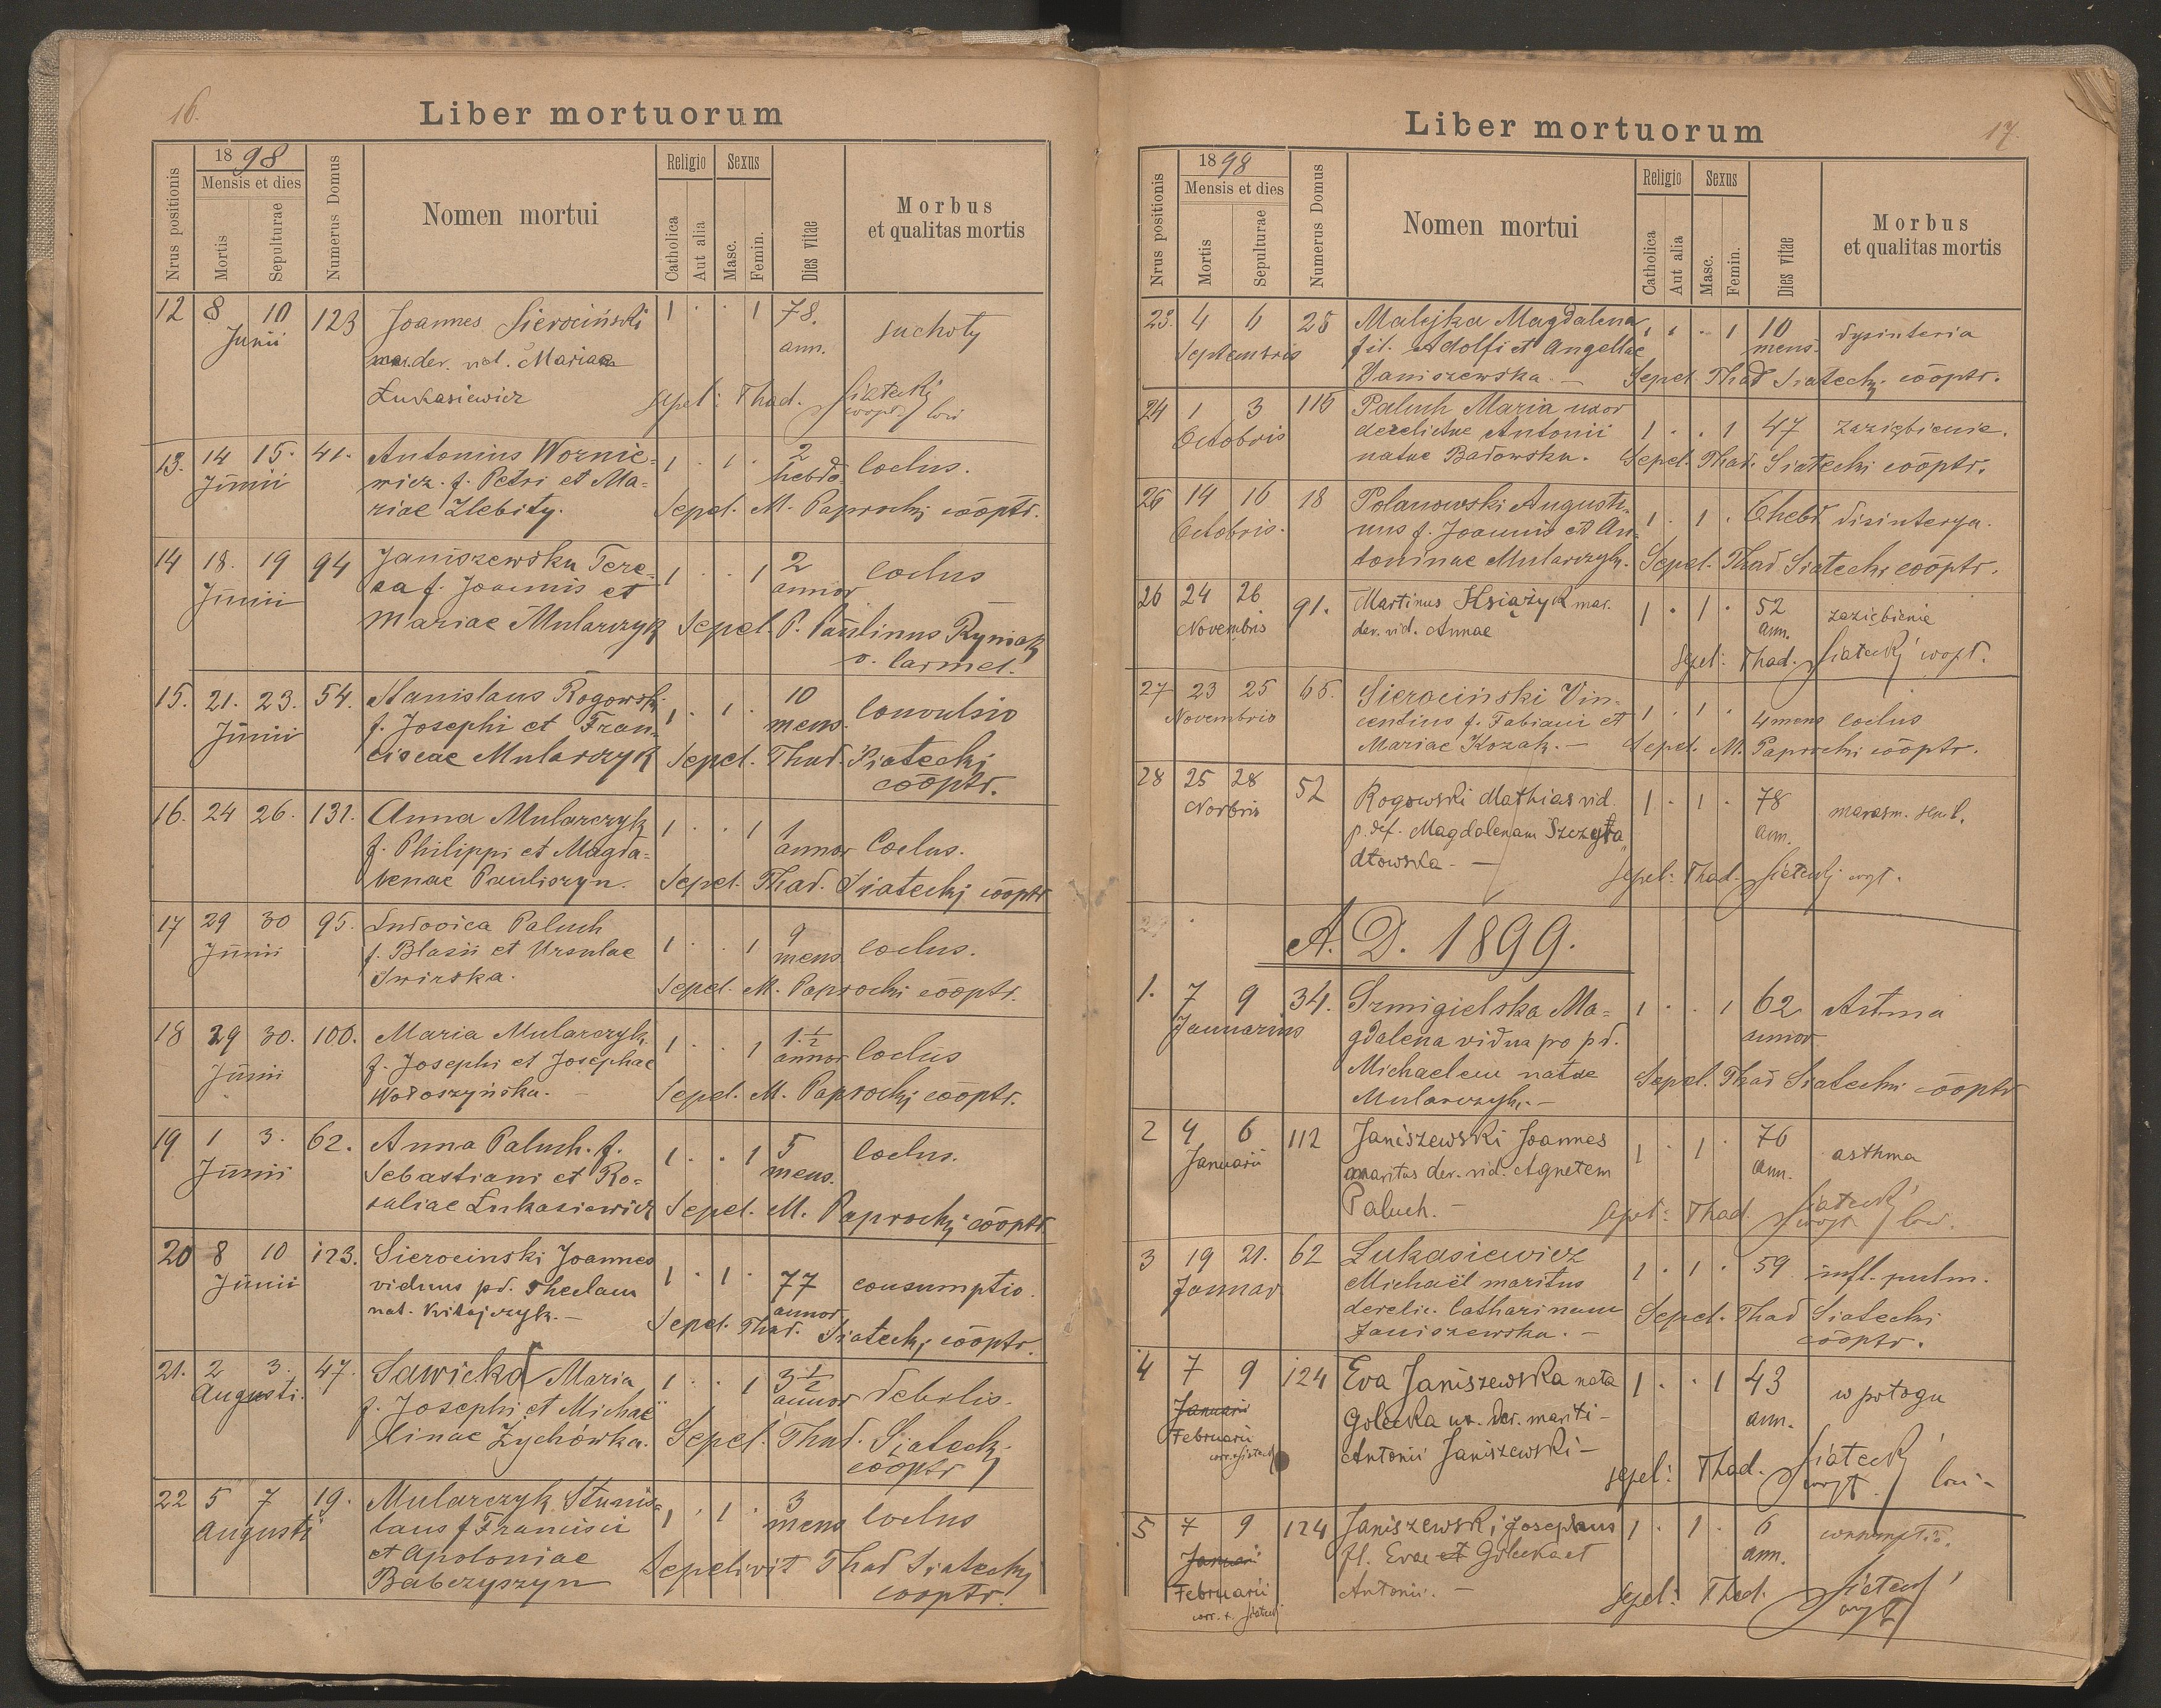 16.
Liber mortuorum
Nrus positionis
1898
Mensis et dies
Mortis
Sepulturae
Numerus Domus
Nomen mortui
Religio
Catholica
Aut alia
Sexus
Masc.
Femin.
Dies vitae
Morbus
et qualitas mortis
12 8 10 123 Joannes Sierociński 1 . . 1 78. suchoty
Junii ann.
mar. der. vid. Mariam
Łukasiewicz Sepel: Thad. Siatecki
coopr. loci
13. 14 15. 41. Antonius Woźnie= 1 . 1 . 2 coclus.
Junii wicz. f. Petri et Ma= hebd.
riae Zlebity. Sepel. M. Paprocki cooptr.
14 18. 19 94 Janiszewska Tere= 1 . . 1 2 coclus
Junii sa f. Joannis et annor
Mariae Mularczyk Sepel. P. Paulinus Ryniak
o. Carmel.
15. 21. 23. 54. Stanislaus Rogowski 1 . 1 . 10 convulsio
Junii f. Josephi et Fran= mens.
ciscae Mularczyk Sepel. Thad. Siatecki
cooptr.
16. 24 26. 131. Anna Mularczyk 1 . . 1 1 Coclus.
f. Philippi et Magda= annor
lenae Pauliszyn. Sepel. Thad. Siatecki cooptr
17 29 30 95. Ludovica Paluch 1 . . 1 9 coclus.
Junii f. Blasii et Ursulae mens.
Swirska. Sepel. M. Paprocki cooptr.
18 29 30. 100. Maria Mularczyk. 1 . . 1 1 ½ coclus
Junii f. Josephi et Josephae annor
Wołoszyńska. Sepel. M. Paprocki cooptr.
19 1 3. 62. Anna Paluch. f. 1 . . 1 5 coclus.
Junii Sebastiani et Ro= mens.
saliae Łukasiewicz Sepel. M. Paprocki cooptr
20 8 10 123. Sierocinski Joannes 1 . 1 . 77 consumptio.
Junii viduus pd. Theclam annor
nat. Kitajczyk. Sepel. Thad. Siatecki cooptr.
21. 2 3. 47. Sawicka Maria 1 . . 1 3 ½ debilis.
Augusti. f. Josephi et Michae annor
linae Żychówka. Sepel. Thad. Siatecki
cooptr
22 5 7 19. Mularczyk Stanis= 1 . 1 . 3 coclus
Augusti laus f Francisci mens
et Apoloniae Sepelivit Thad Siatecki
Babczyszyn cooptr.
17.
Liber mortuorum
Nrus positionis
1898
Mensis et dies
Mortis
Sepulturae
Numerus Domus
Nomen mortui
Religio
Catholica
Aut alia
Sexus
Masc.
Femin.
Dies vitae
Morbus
et qualitas mortis
23. 4 6 25 Malejka Magdalena 1 . . 1 10 dysinteria
Septembris fil. Adolfi et Angellae mens.
Janiszewska. Sepel. Thad Siatecki cooptr.
24 1 3 115 Paluch Maria uxor
Octobris derelictae Antonii 1 . . 1 47 zaziębienie.
natae Badowska. Sepel. Thad. Siatecki cooptr.
25 14 16 18 Polanowski Augusti= 1 . 1 . 6 hebd disinterya.
Octobris. nus f. Joannis et An=
toninae Mularczyk. Sepel. Thad Siatecki cooptr.
26 24 26 91. Martinus Książyk mar. 1 . 1 . 52 zaziębienie
Novembris der. vid. Annae ann.
Sepel: Thad. Siatecki coopt.
27 23 25 65. Sierociński Vin= 1 . 1 .
Novembris centius f. Fabiani et 4 mens coclus
Mariae Kozak. Sepel. M. Paprocki cooptr.
28 25 28 52 Rogowski Mathias vid. 1 . 1 . 78 marasm. senil.
Novbris p. def. Magdalenam Szczyta ann.
dłowska - Sepel: Thad. Siatecki copt.
A. D. 1899.
1. 7 9 34. Szmigielska Ma= 1 . . 1 62 Astma
Januarius gdalena vidua po pd. annor
Michaelem natae Sepel. Thad Siatecki cooptr
Mularczyk.
2 4 6 112 Janiszewski Joannes 1 . 1 . 76 asthma
Januarii maritus der. vid. Agnetem ann.
Paluch. Sepel: Thad. Siatecki
coopt. loci.
3 19 21. 62 Lukasiewicz 1 . 1 . 59 infl. pulm.
Januar Michaël maritus
derelic. Catharinam Sepel. Thad Siatecki
Janiszewska. cooptr.
4 7 9 124 Eva Janiszewska nata 1 . . 1 43 w połogu
Januarii Golecka ux. der. mariti ann.
Februarii Antonii Janiszewski
corr. Siatecki Sepel: Thad. Siatecki
coopt. loci
5 7 9 124 Janiszewski Josephus 1 . 1 . 6 consumptio.
Januarii fil. Evae et Golecka et ann.
Februarii Antonii. Sepel: Thad. Siatecki
corr. t. Siatecki coopt